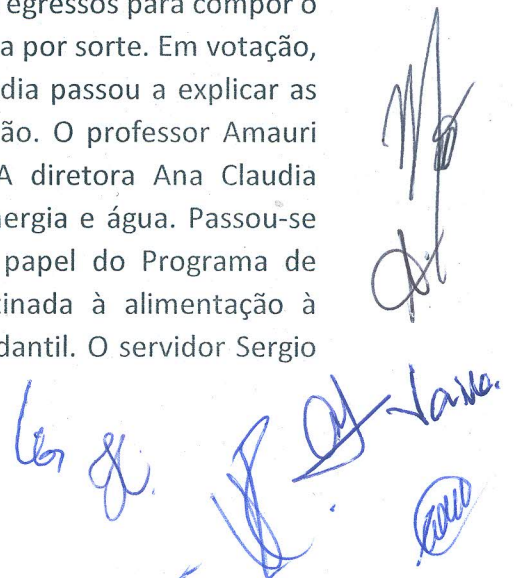 egressos para compor o
a por sorte. Em votação,
dia passou a explicar as
ão. O professor Amauri
A diretora Ana Claudia
nergia e água. Passou-se
papel do Programa de
tinada à alimentação à
dantil. O servidor Sergio